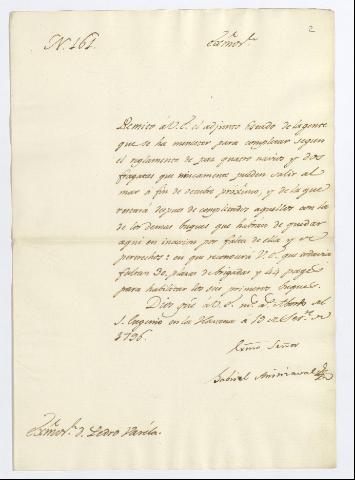 2
N.º 161.
Exmo. Sor.
Remito a V.E. el adjunto Estado de la gente
que se ha menester para completar segun
el reglamento de paz quatro navios y dos
fragatas que unicamente pueden salir al
mar a fin de octubre proximo, y de la que
restará despues de completados aquellos con la
de los demas buques que habran de quedar
aqui en inaccion por falta de ella y de
pertrechos: en que reconocerá V.E. que todavia
faltan 30, plazas de brigadas y 44 pages
para habilitar los seis primeros buques.
Dios gue. á V.E. ms. as. Abordo del
S. Eugenio en la Havana á 19 de Sepre. de
1796.
Exmo. Señor
Gabriel Aristizabal
Exmo. Sor. D. Pedro Varela.